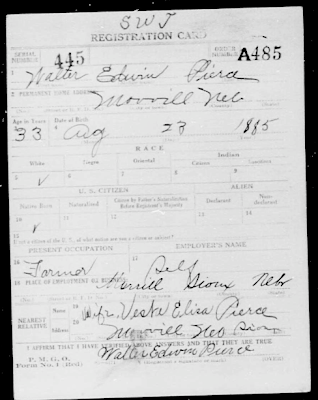 SWJ
REGISTRATION CARD
SERIAL NUMBER 445 ORDER NUMBER A485
1 Walter Edwin Pierce
2 PERMANENT HOME ADDRESS
Morrill Neb
Age in Years Date of Birth
33 Aug 23 1885
RACE
White Negro Oriental Indian
Citizen Noncitizen
5 6 7 8 9
✓
U. S. CITIZEN ALIEN
Native Born Naturalized Citizen by Father's Naturalization Before Registrant's Majority Declarant Non-declarant
10 11 12 13 14
✓
15 If not a citizen of the U. S., of what nation are you a citizen or subject?
PRESENT OCCUPATION EMPLOYER'S NAME
16 17
Farmer Self
18 PLACE OF EMPLOYMENT OR BUSINESS
Morrill Sioux Nebr
NEAREST RELATIVE Name 19 Wife Vesta Eliza Pierce
Address 20 Morrill Neb Sioux
I AFFIRM THAT I HAVE VERIFIED ABOVE ANSWERS AND THAT THEY ARE TRUE
P. M. G. O.
Form No. 1 (Red)
Walter Edwin Pierce